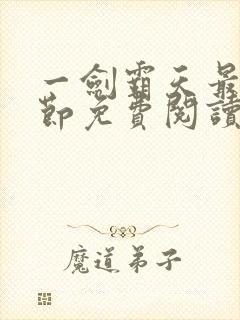 一劍霸天最
節免費閱讀
魔道弟子